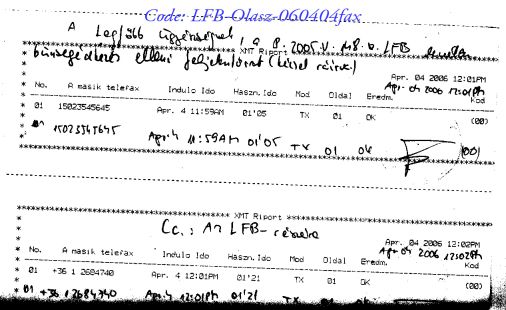 Code: LFB-Olasz-060404fax
A Legf/366 Ügyészségnek,
XMT Riport
Apr. 04 2006 12:01PM
Apr. 04 2006 12:01PM
No. A masik telefax Indulo Ido Haszn.Ido Mod Oldal Eredm. Kod
01 15023545645 Apr. 4 11:59AM 01'05 TX 01 OK (00)
01 15023545645 Apr. 4 11:59AM 01'05 TX 01 OK (00)
XMT Riport
Cc.: Az LFB- részére
Apr. 04 2006 12:02PM
Apr. 04 2006 12:02PM
No. A masik telefax Indulo Ido Haszn.Ido Mod Oldal Eredm. Kod
01 +36 1 2684740 Apr. 4 12:01PM 01'21 TX 01 OK (00)
01 +36 1 2684740 Apr. 4 12:01PM 01'21 TX 01 OK